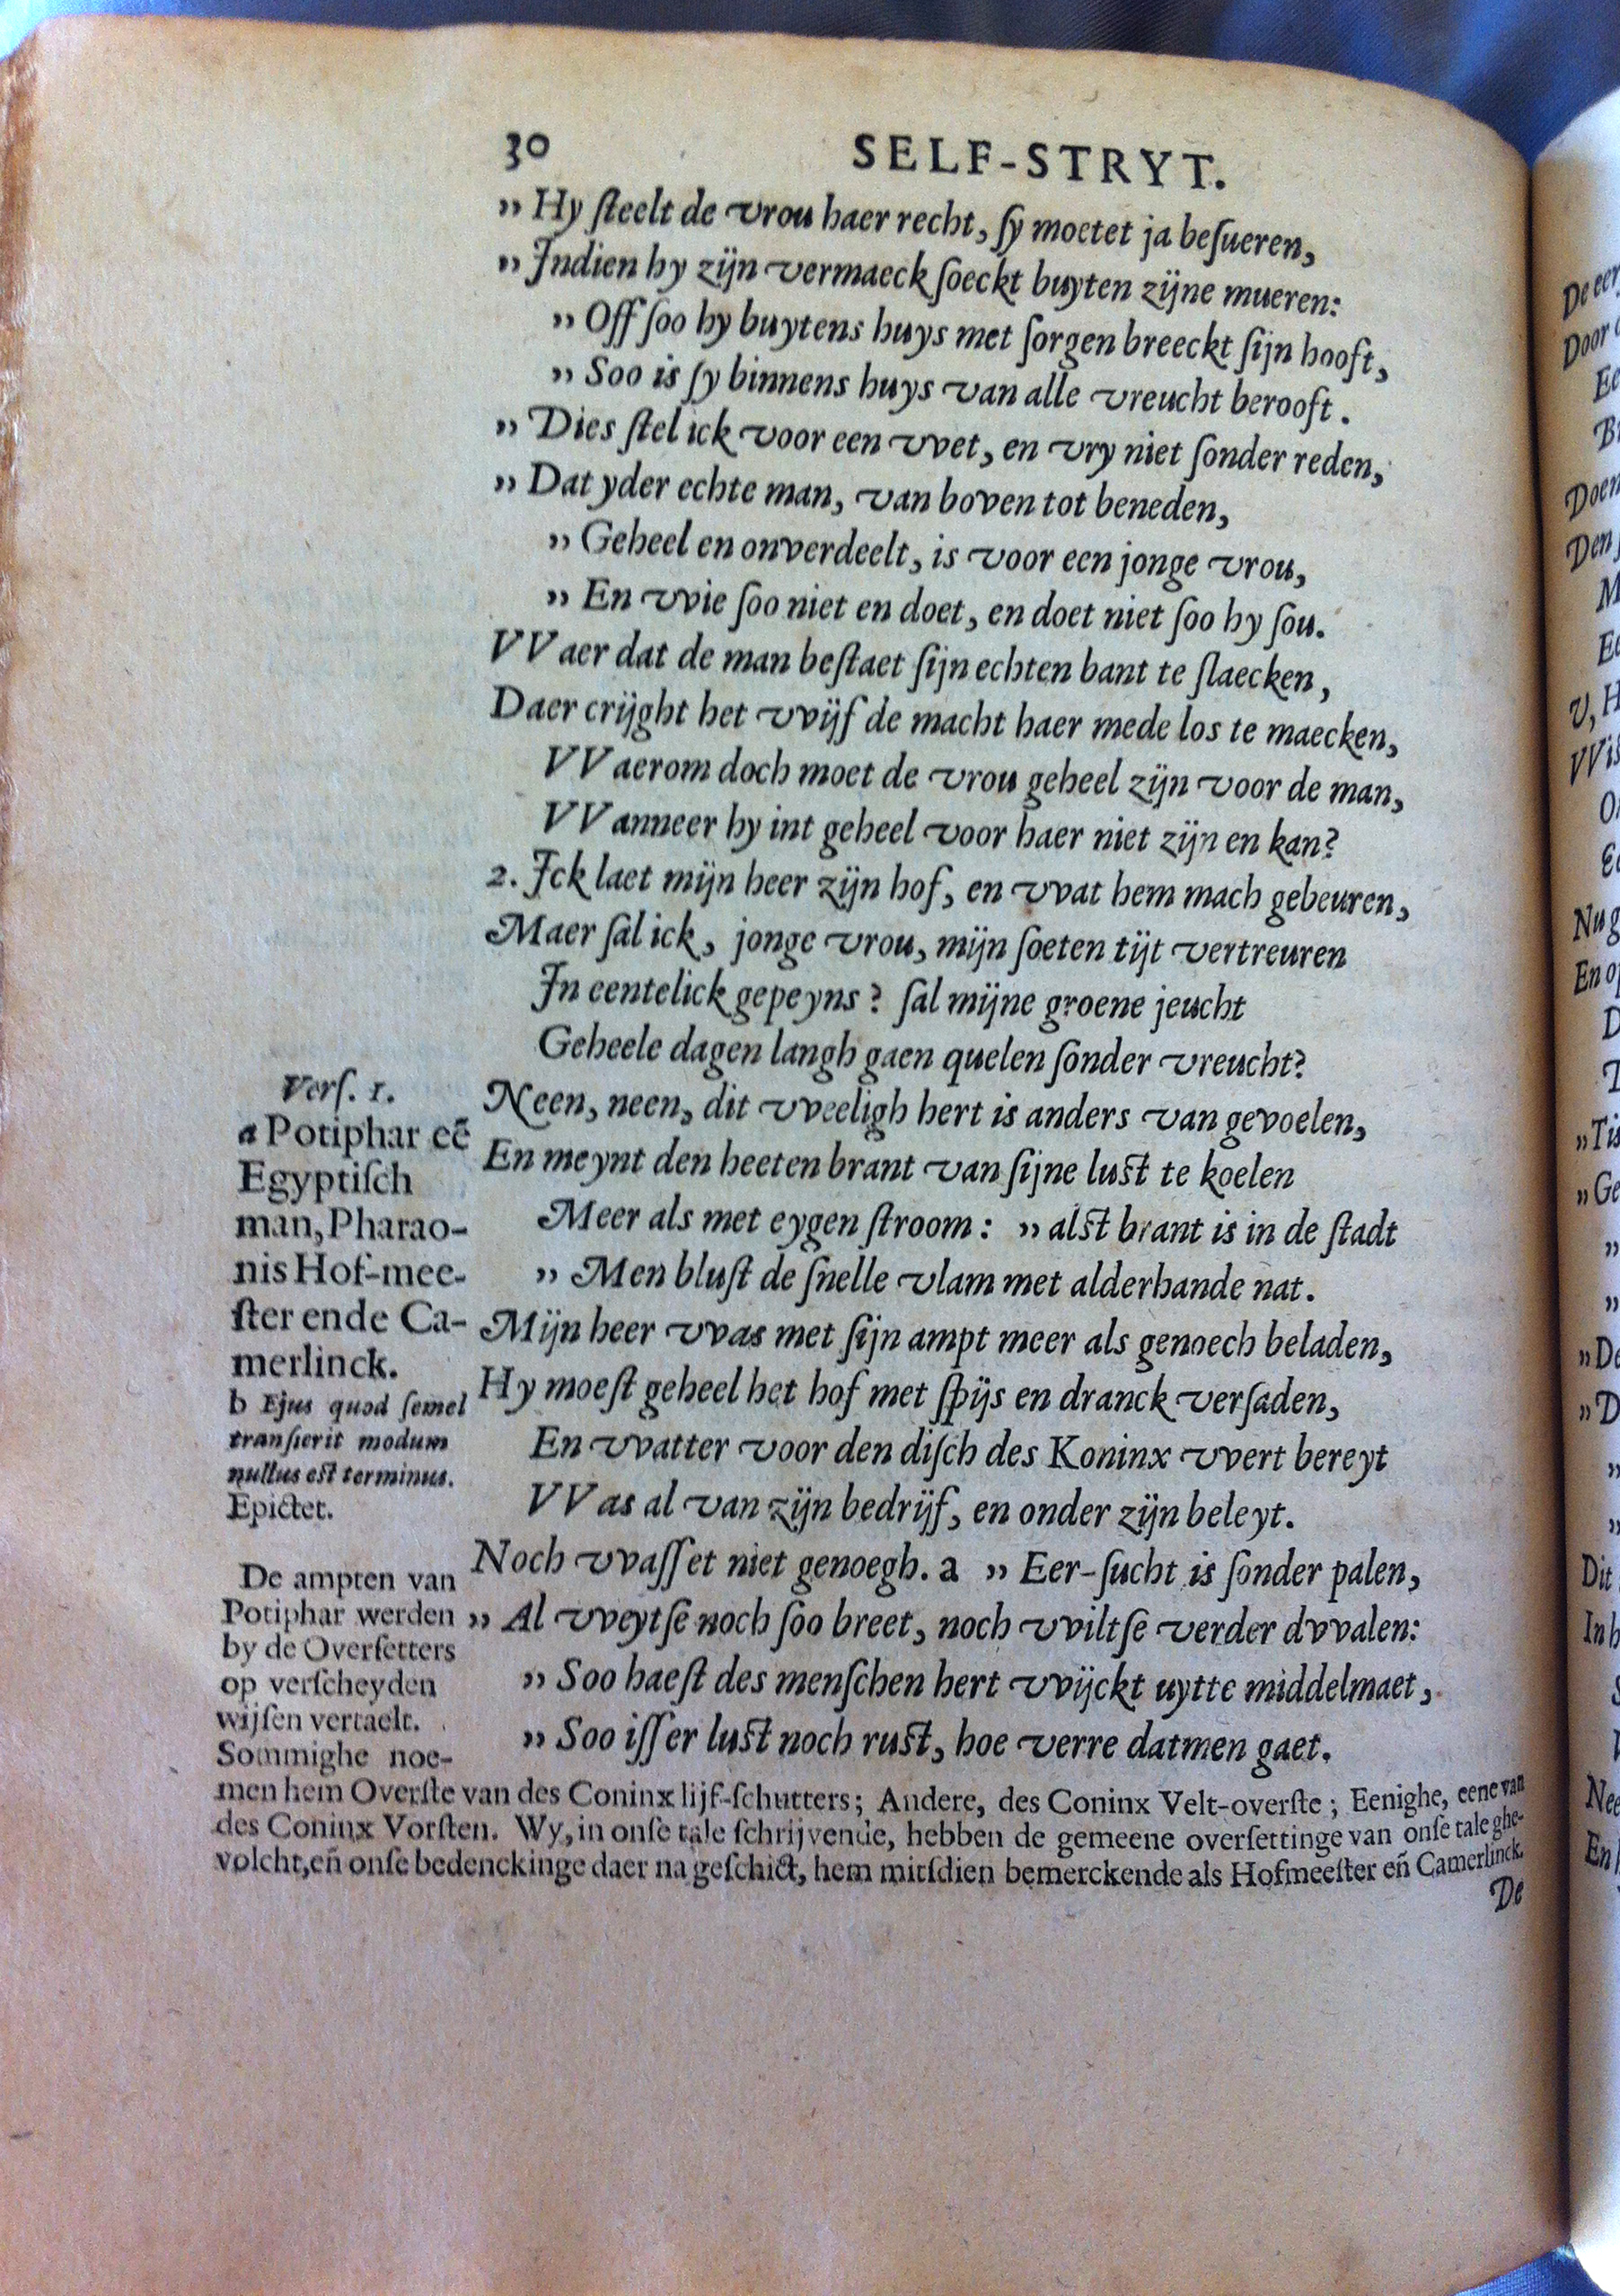 30 SELF-STRYT.
„ Hy ſteelt de vrou haer recht, ſy moetet ja beſueren,
„ Indien hy zijn vermaeck ſoeckt buyten zijne mueren:
„ Off ſoo hy buytens huys met ſorgen breeckt ſijn hooft,
„ Soo is ſy binnens huys van alle vreucht berooft.
„ Dies ſtel ick voor een vvet, en vry niet ſonder reden,
„ Dat yder echte man, van boven tot beneden,
„ Geheel en onverdeelt, is voor een jonge vrou,
„ En vvie ſoo niet en doet, en doet niet ſoo hy ſou.
VVaer dat de man beſtaet ſijn echten bant te ſlaecken,
Daer crijght het vvijf de macht haer mede los te maecken,
VVaerom doch moet de vrou geheel zijn voor de man,
VVanneer hy int geheel voor haer niet zijn en kan?
2. Ick laet mijn heer zijn hof, en vvat hem mach gebeuren,
Maer ſal ick, jonge vrou, mijn ſoeten tijt vertreuren
In eentelick gepeyns? ſal mijne groene jeucht
Geheele dagen langh gaen quelen ſonder vreucht?
Neen, neen, dit vveeligh hert is anders van gevoelen,
En meynt den heeten brant van ſijne luſt te koelen
Meer als met eygen ſtroom: „ alſt brant is in de ſtadt
„ Men bluſt de ſnelle vlam met alderhande nat.
Mijn heer vvas met ſijn ampt meer als genoech beladen,
Hy moeſt geheel het hof met ſpijs en dranck verſaden,
En vvatter voor den diſch des Koninx vvert bereyt
VVas al van zijn bedrijf, en onder zijn beleyt.
Noch vvaſſet niet genoegh. a „ Eer-ſucht is ſonder palen,
„ Al vveytſe noch ſoo breet, noch vviltſe verder dvvalen:
„ Soo haeſt des menſchen hert vvijckt uytte middelmaet,
„ Soo iſſer luſt noch ruſt, hoe verre datmen gaet.
Verſ. 1.
a Potiphar eē
Egyptiſch
man, Pharao-
nis Hof-mee-
ſter ende Ca-
merlinck.
b Ejus quod ſemel
tranſierit modum
nullus eſt terminus.
Epictet.
De ampten van
Potiphar werden
by de Overſetters
op verſcheyden
wijſen vertaelt.
Sommighe noe-
men hem Overſte van des Coninx lijf-ſchutters; Andere, des Coninx Velt-overſte; Eenighe, eene van
des Coninx Vorſten. Wy, in onſe tale ſchrijvende, hebben de gemeene overſettinge van onſe tale ghe-
volcht, eñ onſe bedenckinge daer na geſchict, hem mitſdien bemerckende als Hofmeeſter eñ Camerlinck.
De